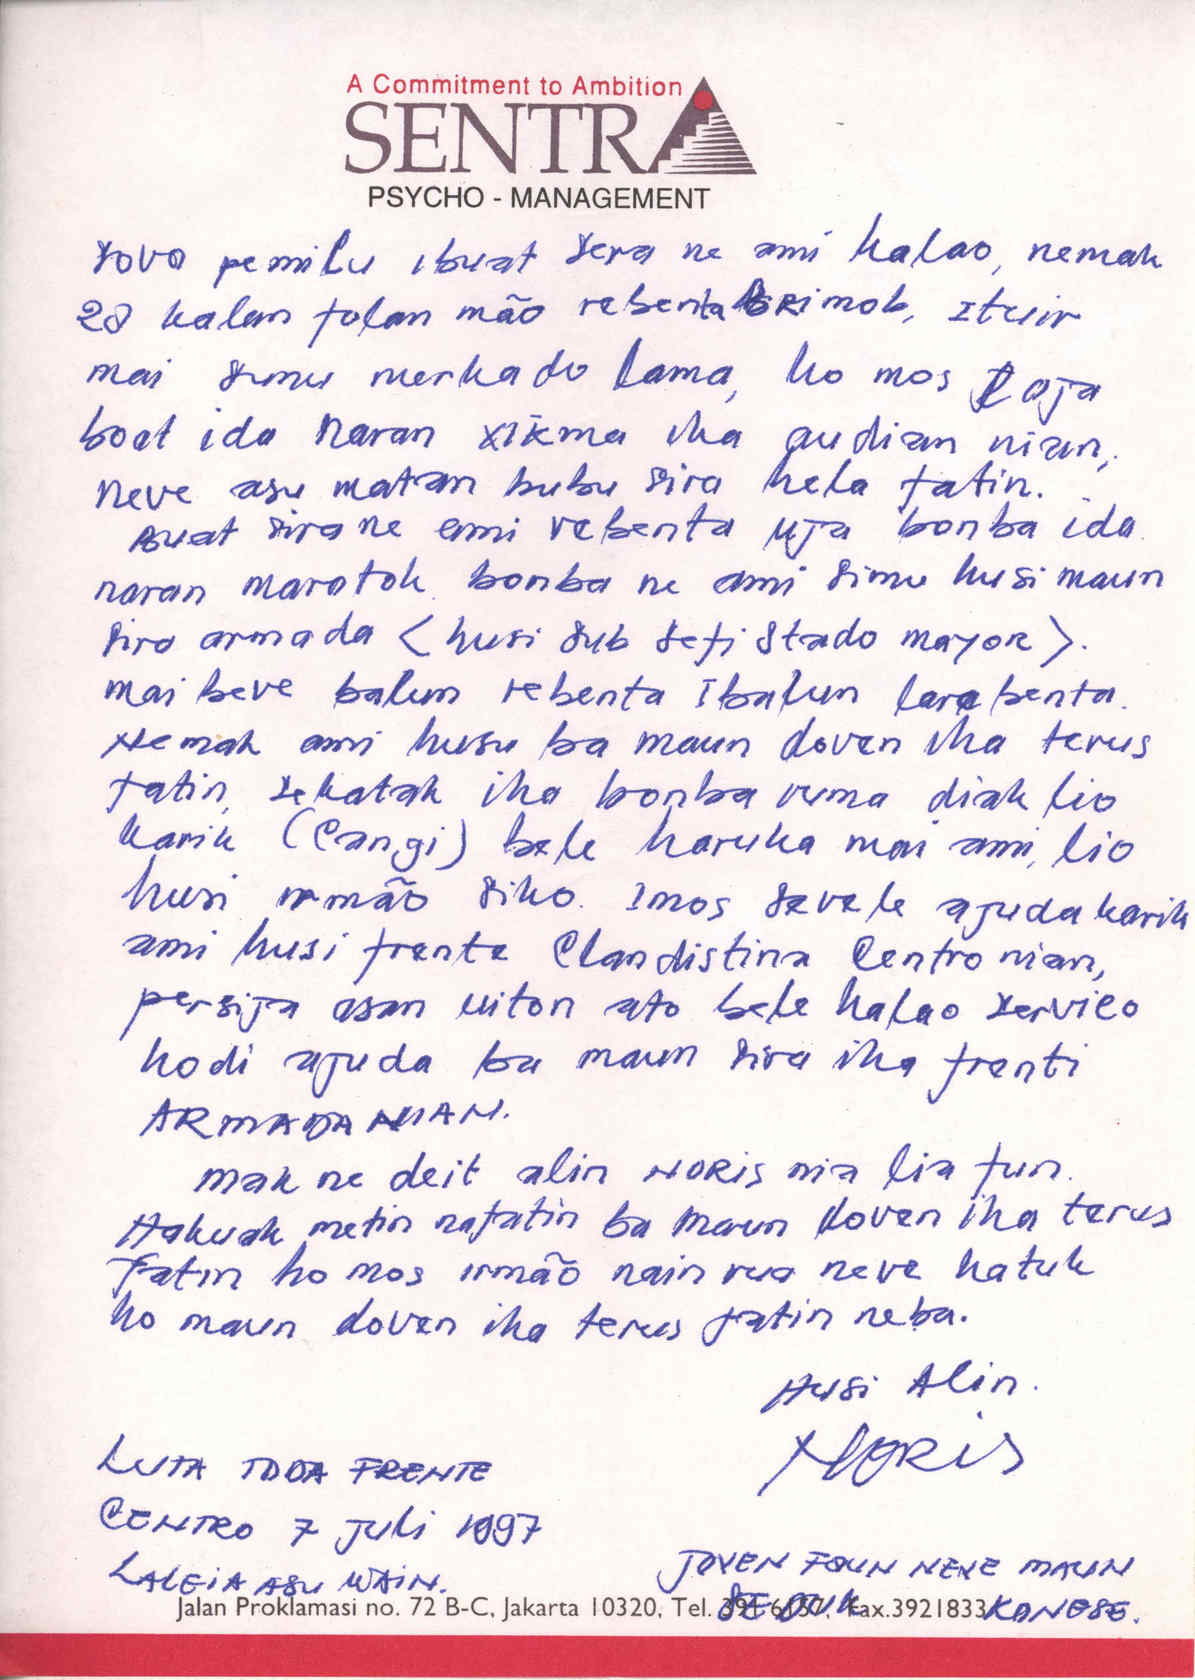 A Commitment to Ambition
SENTRA
PSYCHO - MANAGEMENT
sovo pemilu ibuat sera ne ami halao, nemak
28 kalan tolan mão rebenta BRimob, Ituir
mai sunu merkado lama, ho mos Loja
boat ida naran xikma iha audian nian,
neve asu matan bubu sira hela fatin.
Buat sira ne ami rebenta uja bonba ida
naran marotok. bonba ne ami simu husi maun
sira armada < husi sub sefi stado mayor >.
mai beve balun rebenta Ibalun la rebenta.
Nemak ami husu ba maun doven iha terus
fatin, sekatak iha bonba ruma diak lio
karik (Cangi) bele haruka mai ami, lio
husi irmão siko. Imos sevele ajuda karik
ami husi frente Clandistina Centro nian,
persija osan uiton ato bele halao servico
hodi ajuda ba maun sira iha frenti
ARMADA NIAN.
mak ne deit alin NORIS nia lia fun.
Hakuak metin nafatin ba maun doven iha terus
fatin ho mos irmão nain rua neve hatuk
ho maun doven iha terus fatin neba.
Husi Alin.
NORIS
LUTA TODA FRENTE
CENTRO 7 Juli 1997
LALEIA ASU WAIN.
JOVEN FOUN NEVE MAUN
KONESE.
Jalan Proklamasi no. 72 B-C, Jakarta 10320, Tel. Fax.3921833